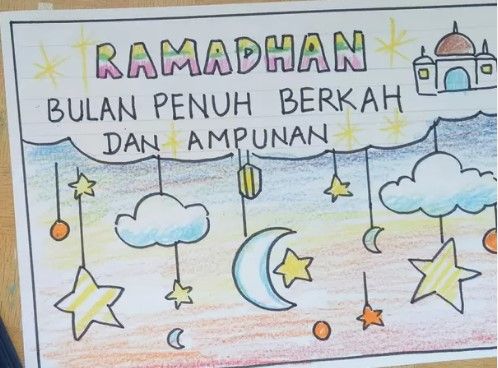 RAMADHAN
BULAN PENUH BERKAH
DAN AMPUNAN